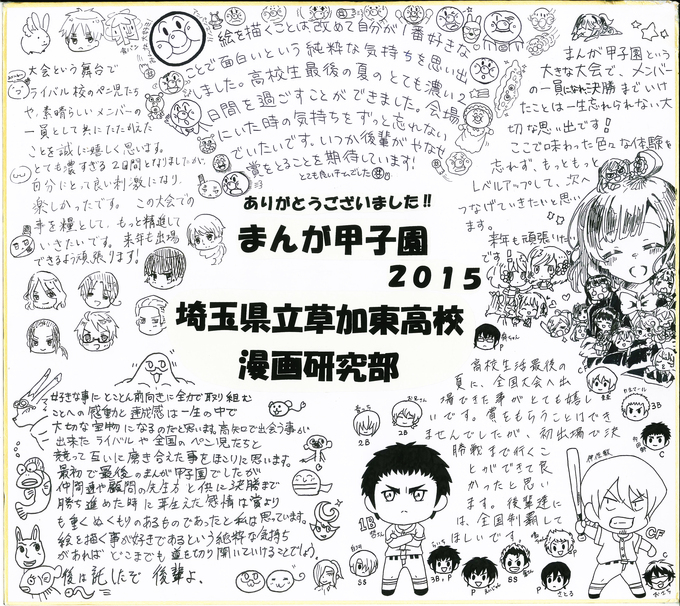 絵を描くことは改めて自分が1番好きな
ことで面白いという純粋な気持ちを思い出
しました。高校生最後の夏のとても濃い
2日間を過ごすことができました。会場
にいた時の気持ちをずっと忘れない
でいたいです。いつか後輩がやなせ
賞をとることを期待しています!
大会という舞台で
ライバル校のペン児たち
や、素晴らしいメンバーの
一員として共にたたかえた
ことを誠に嬉しく思います。
とても濃すぎる2日間となりましたが、
自分にとって良い刺激になり、
楽しかったです。この大会での
事を糧として、もっと精進して
いきたいです。来年も出場
できるよう頑張ります!
まんが甲子園という
大きな大会で、メンバー
の一員になれ決勝までいけ
たことは一生忘れられない大
切な思い出です!
ここで味わった色々な体験を
忘れず、もっともっと
レベルアップして、次へ
つなげていきたいと思い
ます。
来年も頑張りたい
です!
ありがとうございました!!
まんが甲子園
2015
埼玉県立草加東高校
漫画研究部
好きな事にとことん前向きに全力で取り組む
ことへの感動と達成感は一生の中で
大切な宝物になるのだと思います。高知で出会う事が
出来たライバルや全国のペン児たちと
競って互いに磨き合えた事をほこりに思います。
最初で最後のまんが甲子園でしたが
仲間達や顧問の先生方と供に決勝まで
勝ち進めた時に芽生えた感情は賞より
も重くぬくもりのあるものであったと私は思っています。
絵を描く事が好きであるという純粋な気持ち
があればどこまでも道を切り開いていけることでしょう。
後は託したで 後輩よ、
高校生活最後の
夏に、全国大会へ出
場できた事がとても嬉し
いです。賞をもらうことはでき
ませんでしたが、初出場で決
勝戦まで行くこ
とができて良
かったと思い
ます。後輩達に
は、全国制覇して
ほしいです。
2B
2B
3B
C
1B
SS
3B, P
P
SS
P
P
CF
C